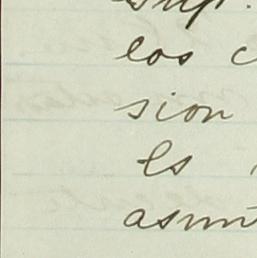 los c
sion
Es
asun